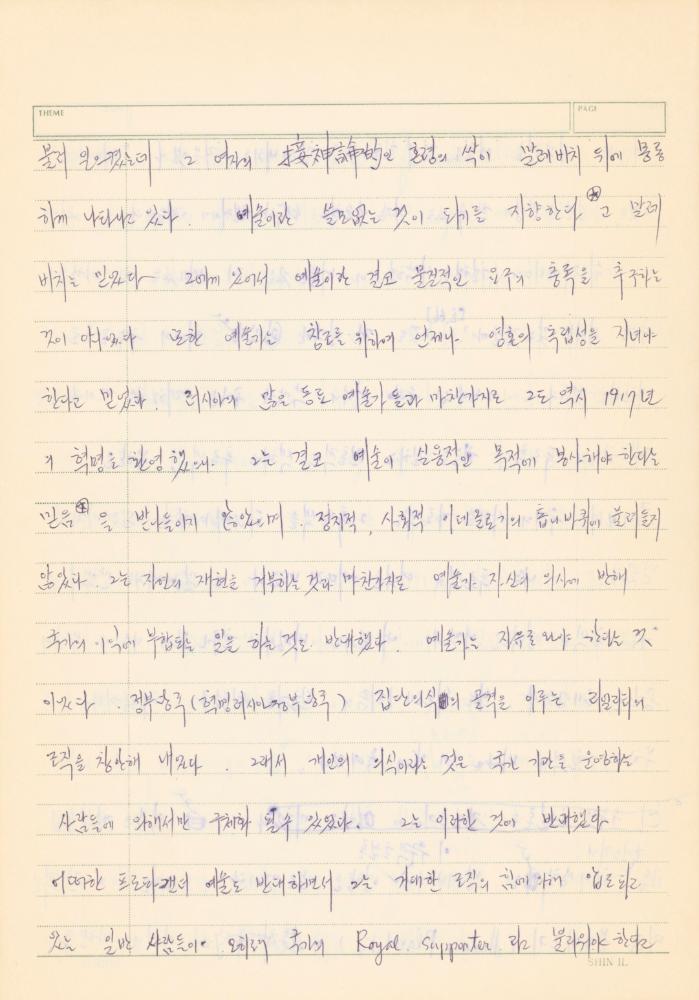 THEME
PAGE
불러 일으켰는데 그 여자의 接神論的인 혼령의 싹이 말레비치 뒤에 몽롱
하게 나타나고 있다. 예술이란 쓸모없는 것이 되기를 지향한다 고 말레
비치는 믿었다 그에게 있어서 예술이란 결코 물질적인 요구의 충족을 추구하는
것이 아니었다 또한 예술가는 창조를 위하여 언제나 영혼의 독립성을 지녀야
한다고 믿었다. 러시아의 많은 동료 예술가들과 마찬가지로 그도 역시 1917년
의 혁명을 환영했으나. 그는 결코 예술이 실용적인 목적에 봉사해야 한다는
믿음 을 받아들이지 않았으며. 정치적, 사회적 이데올로기의 톱니바퀴에 물려들지
않았다. 그는 자연의 재현을 거부하는 것과 마찬가지로 예술가 자신의 의사에 반해
국가의 이익에 부합되는 일을 하는 것도 반대했다. 예술가는 자유로와야 한다는 것
이었다. 정부당국(혁명러시아정부당국) 집단의식의 골격을 이루는 리얼리티의
조직을 창안해 내었다. 그래서 개인의 의식이라는 것은 국가 기관을 운영하는
사람들에 의해서만 구체화 될수 있었다. 그는 이러한 것에 반대했다
어떠한 프로파갠더 예술도 반대하면서 그는 거대한 조직의 힘에 의해 압도되고
있는 일반 사람들이 오히려 국가의 Royal. Supporter. 라고 불리워야 한다고
SHIN IL